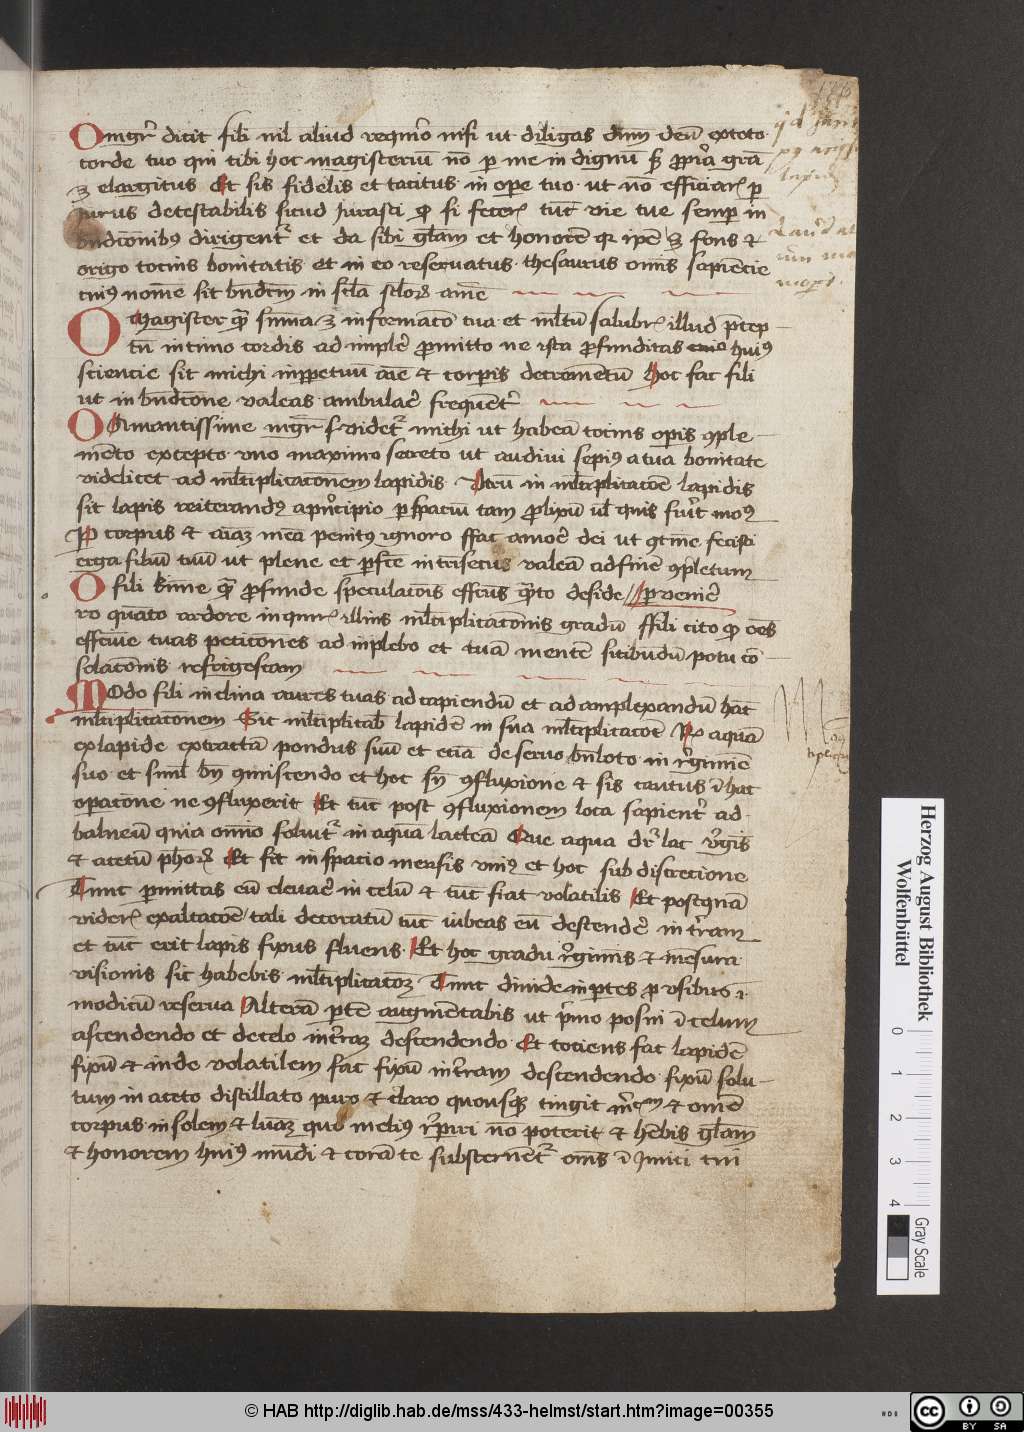 Omgr̄ dicit fili nil aliud reqͥro nisi ut diligas dnm deū ex toto
corde tuo qm̄ tibi hoc magisteriū nō ꝑ me indignū sꝫ ꝓpͥa grā
ꝫ elargitus Et sis fidelis et tacitus in oꝑe tuo ut nō efficiaꝝ ꝑ
iurus detestabilis sicud iurasti ꝙ si feceꝝ tūc vie tue semꝑ in
bn̄dcōnibꝰ dirigentᷣ et da sibi glām et honorē qꝛ ipē ꝫ fons &
origo tocius bonitatis et in eo reseruatus thesaurus om̄is sapiencie
cuiꝰ nomē sit bn̄dcm̄ in scla sclorꝫ amē
O Magister quā summa ꝫ informacō tua et ml̄tū salubrꝫ illud p̄cep
tū in timo cordis ad implēr ꝓmitto ne ista ꝓfunditas huiꝰ
sciencie sit michi inꝑpetuū aīe & corꝑis detrimētū hoc fac fili
ut in bn̄dcōne valeas ambulaēr frequētᷣ
O Amantissime mgr̄ sꝫ videtᷣ michi ut habeā tocius opis ꝯple
mēto excepto vno maximo secreto ut audiui sepiꝰ a tua bonitate
videlicet ad ml̄tiplicatōnem lapidis Vtrū in ml̄tiplicacōe lapidis
sit lapis reiterandꝰ a pͥncipio ꝑ spaciū tam ꝓlixū ul̄ quis fuīt moꝰ
ꝓ corpus & aīaꝫ meā penitꝰ ignoro ffac amoēr dei ut ꝯtine fecisti
erga filiū tuū ut plene et ꝑfcē intrīsecus valeā ad finē ꝯpletum
O fili kīme quā ꝓfunde speculacōis effcūs quāto deside // ꝑueniēr
ro quāto ardore inquirꝫ illius ml̄tiplicatōnis gradū ffili cito ꝙ oēs
effcūe tuas peticōnes ad inplebo et tuā mentē sitibudū potu cō
solacōnis refrigescam
MOdo fili inclina aures tuas ad capiendū et ad amplexandū hāc
ml̄tiplicatōnem Sic ml̄tiplicab̄ lapidē in sua ml̄tiplicacōe ℞ aquā
ex lapide extractā pondus suū et eciā de seruo bn̄ loto in rͥgimīe
suo et simil̄ bn̄ ꝯmiscendo et hoc sn̄ ꝯfluxione & sis cautus ī hac
oꝑacōne ne ꝯfluxerit Et tūc post ꝯfluxionem loca sapientᷣ ad
balneū quia om̄io soluitᷣ in aquā lacteā Que aqua drͥ lac vͥgīs
& acetū ph̄orꝫ Et fit in spacio mensis vniꝰ et hoc sub discrecione
Tunc ꝑmittas eū eleuaēr in celū & tūc fiat volatilis Et postquā
viderꝫ exaltacōe tali decoratū tūc iubeas eū descendēr in tr̄am
et tūc erit lapis fyxus fluens Et hoc gradu rͥgimīs & mēsura
visionis sic habebis ml̄tiplicacōꝫ Tunc diuide in ꝑtes ꝓ vsibus ī
modicū reserua Alterā ꝑtē augmētabis ut pͥmo posui ī celum
ascendendo et de celo in tr̄aꝫ descendendo Et tociens fac lapidē
fyxū & inde volatilem fac fyxū in tr̄am descendendo fyxū solu
tum in aceto distillato puro & claro quousqꝫ tingit mͬcᵐ & omē
corpus in solem & lunaꝫ quo melius rͥꝑiri nō poterit & hēbis glām
& honorem huiꝰ mūdi & corā te substernētᷣ om̄s īimici tui
Herzog August Bibliothek
Wolfenbüttel
0 1 2 3 4
Gray Scale
© HAB http://diglib.hab.de/mss/433-helmst/start.htm?image=00355
HDB
cc BY SA